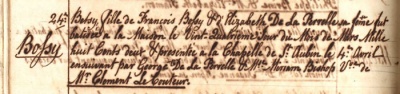 24e. Betsy, Fille de François Bossy & d'Elizabeth De La Perrelle sa fême fut
batisée à la Maison le Vint-Quatrième Jour du Mois de Mars Mille
Bossy
huit Cents deux & presentée a la Chapelle de St. Aubin le 4e. Avril
ensuivant par George De la Perrelle & Mse. Miriam Bishop Vve. de
Mr. Clement Le Couteur.